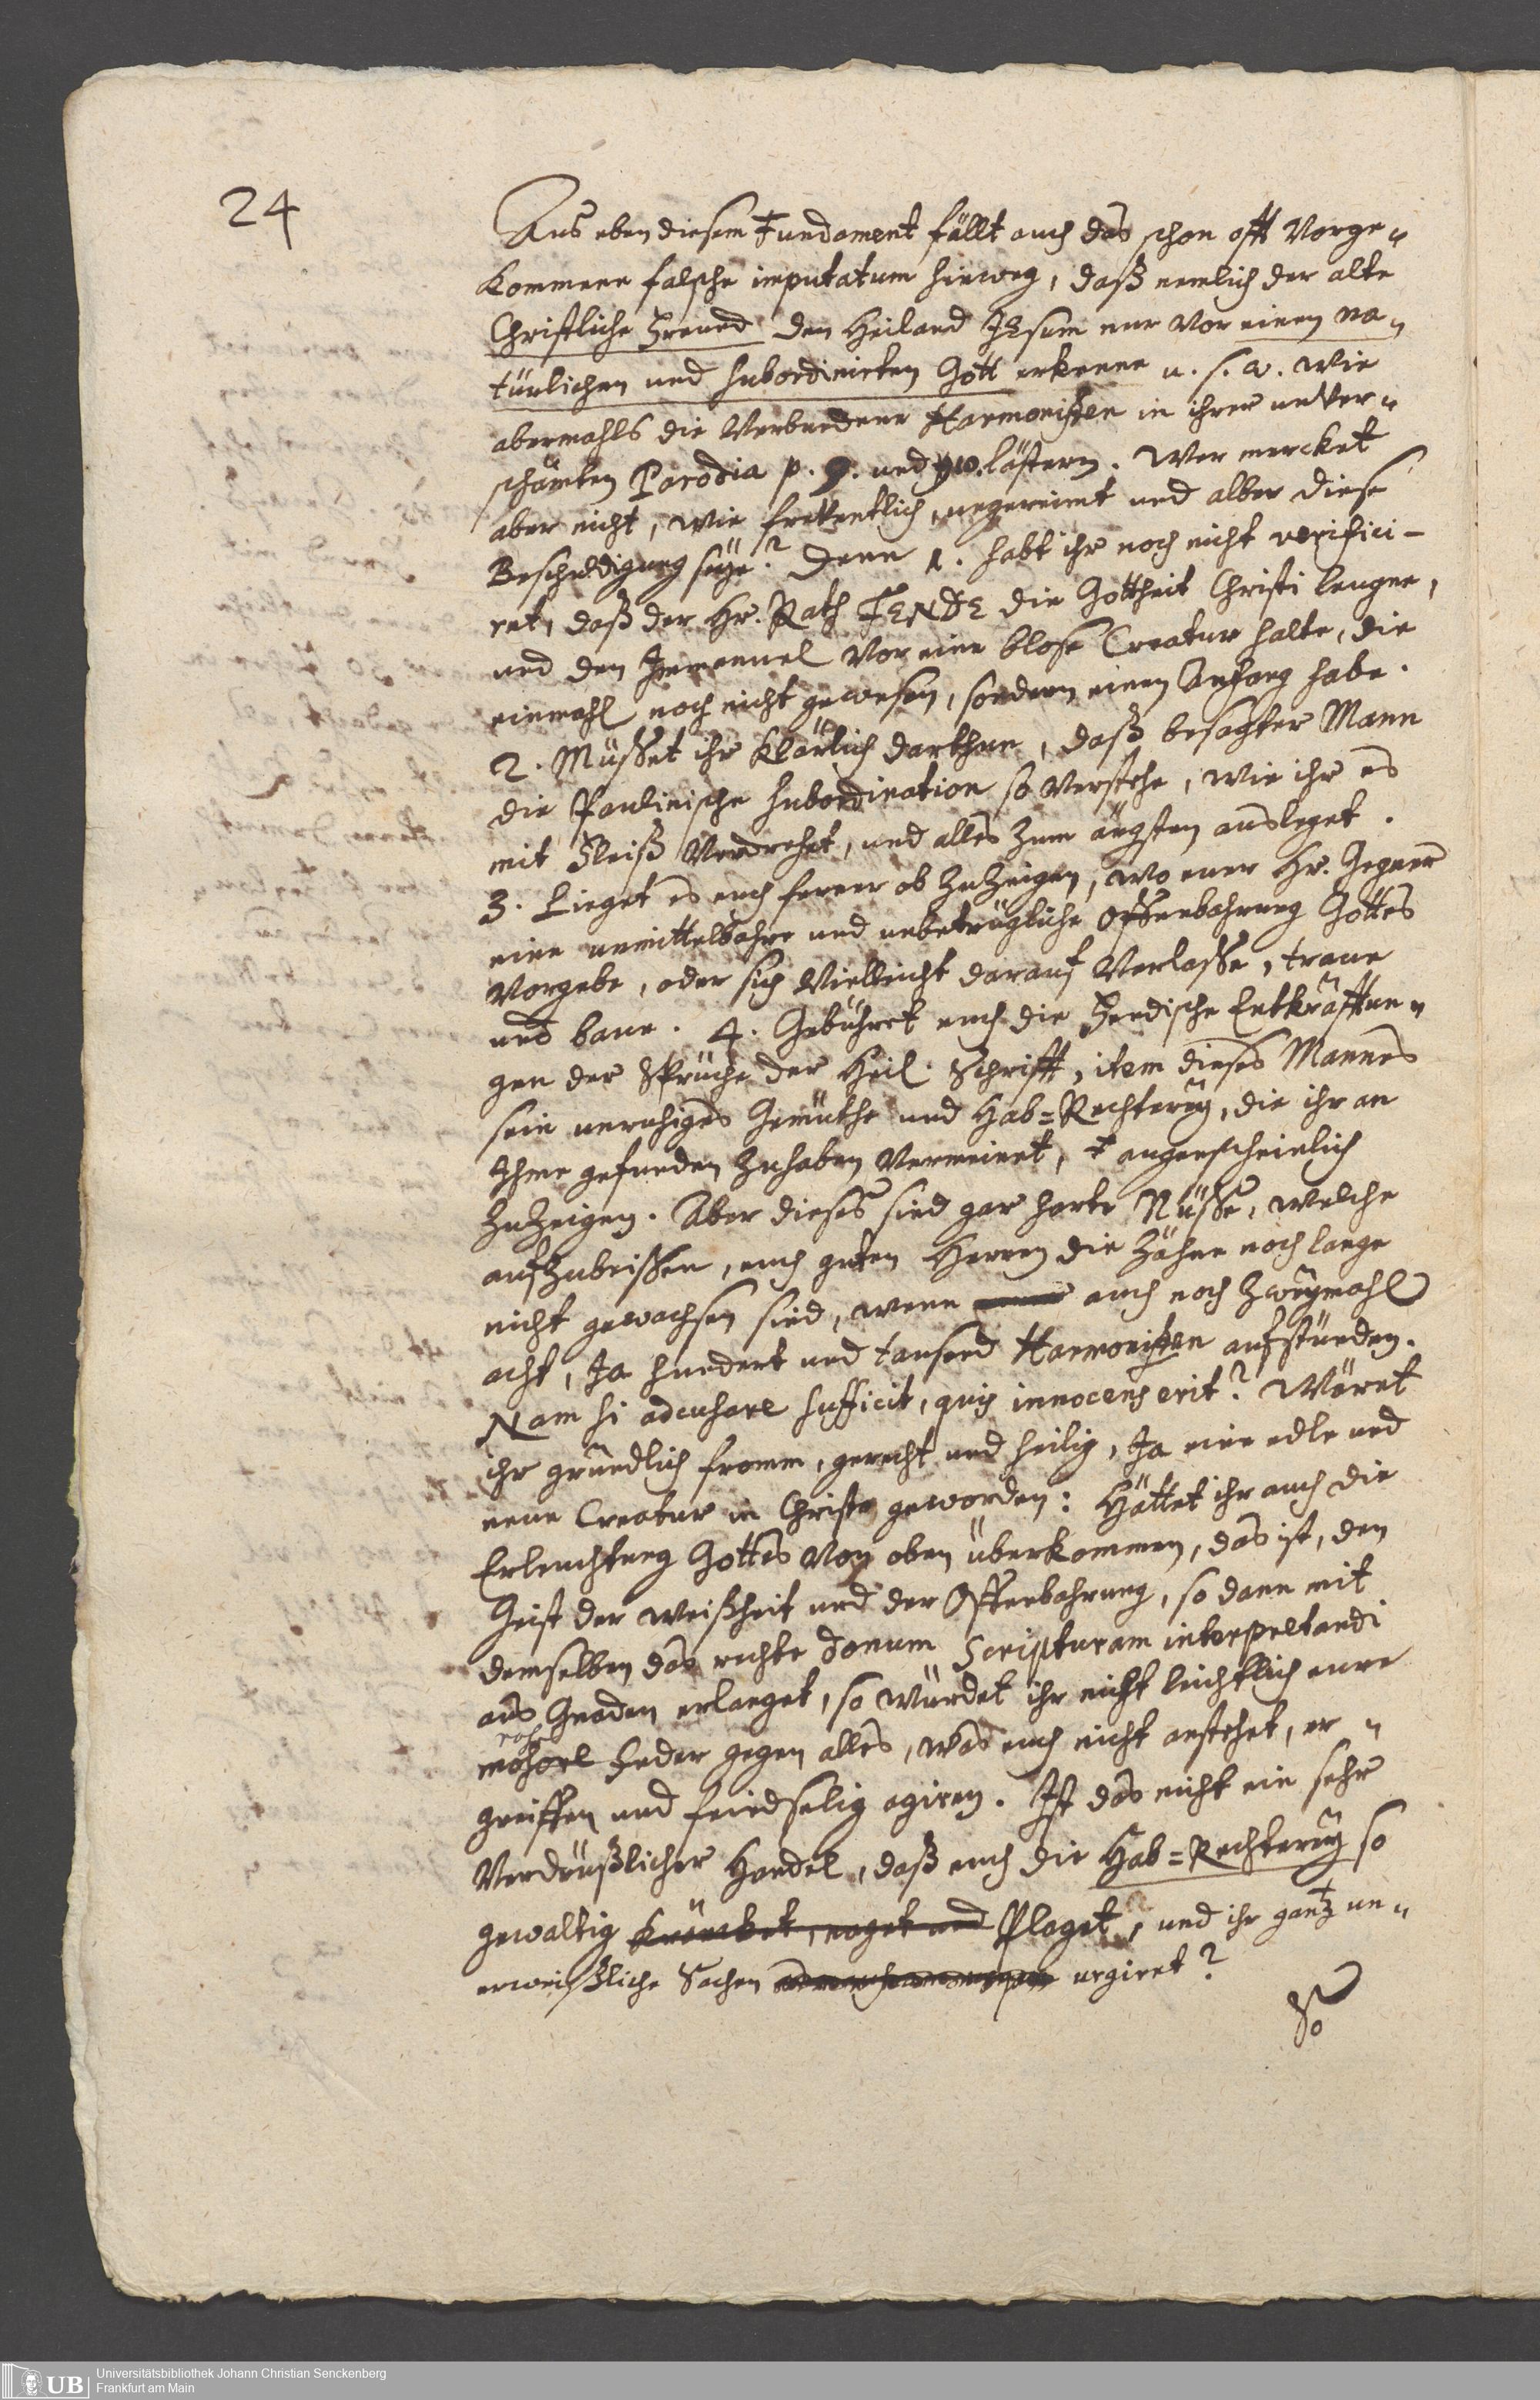 24
Aus eben diesem Fundament fällt auch das schon offt Vorge„
kommene falsche imputatum hinweg, daß nemlich der alte
Christliche Freund den Heiland JEsum nur Vor einen na„
türlichen und subordinirten Gott erkenne u. s. w. wie
abermahls die Verbundene Harmonisten in ihrer unVer„
schämten Parodia p. 9. und 10. lästern. Wer mercket
aber nicht, wie freventlich, ungereimt und alber diese
Beschuldigung seye? Denn 1. habt ihr noch nicht verifici-
ret, daß der Hr. Rath FENDE die Gottheit Christi leugne,
und den Immanuel Vor eine blose Creatur halte, die
einmahl noch nicht gewesen, sondern einen Anfang habe.
2. Müsset ihr klärlich darthun, daß besagter Mann
die Paulinische subordination so Verstehe, wie ihr es
mit Fleiß Verdrehet, und alles zum ärgsten ausleget.
3. Lieget es euch ferner ob zu zeigen, wo euer Hr. Gegner
eine unmittelbahre und unbetrügliche Offenbahrung Gottes
Vorgebe, oder sich Vielleicht darauf Verlasse, traue
und baue. 4. Gebühret euch die Fendische Entkräfftun„
gen der Sprüche der Heil. Schrifft, item dieses Mannes
sein unruhiges Gemüthe und Hab=Rechterey, die ihr an
Ihme gefunden zu haben Vermeinet, augenscheinlich
zu zeigen. Aber dieses sind gar harte Nüsse, welche
aufzubeissen, euch guten Herren die Zähne noch lange
nicht gewachsen sind, wenn auch noch zweymahl
acht, Ja hundert und tausend Harmonisten aufstünden.
Nam si adcusare sufficit, quis innocens erit? Wäret
ihr gründlich fromm, gerecht und heilig, Ja eine edle und
neue Creatur in Christo geworden: Hättet ihr auch die
Erleuchtung Gottes Von oben überkommen, das ist, den
Geist der Weißheit und der Offenbahrung, so dann mit
demselben das rechte donum Scripturam interpretandi
aus Gnaden erlanget, so würdet ihr nicht leichtlich eure
rohe
Feder gegen alles, was euch nicht anstehet, er„
greiffen und feindselig agiren. Ist das nicht ein sehr
Verdrüßlicher Handel, daß euch die Hab=Rechterey so
gewaltig kräncket, naget und Plaget, und ihr gantz un„
erweißliche Sachen urgiret?
So
Universitätsbibliothek Johann Christian Senckenberg
Frankfurt am Main
UB